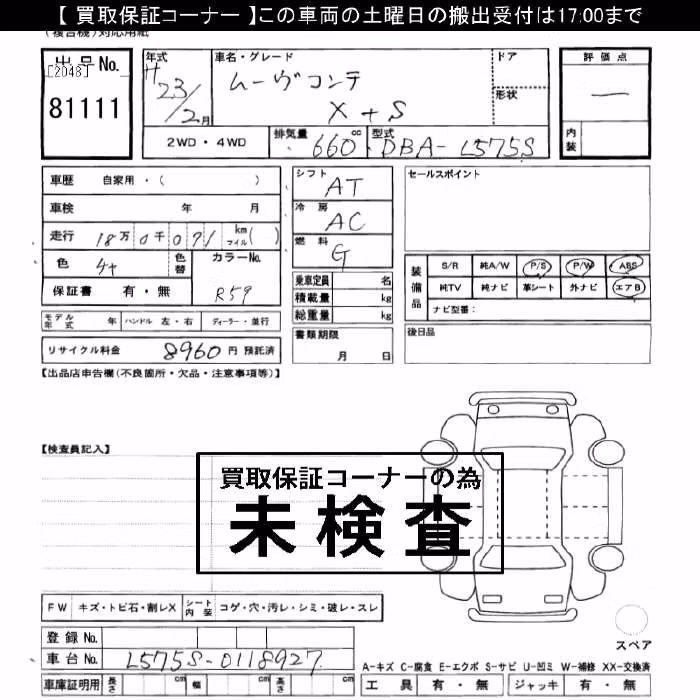 【 買取保証コーナー 】この車両の土曜日の搬出受付は17:00まで
(複合機)対応用紙
出品No.
[2048]
81111
年式
H23/2月
車名・グレード
ムーヴコンテ
X+S
ドア
形状
評価点
―
内装
2WD・4WD
排気量 660 cc
型式 DBA-L575S
車歴 自家用・( )
車検 年 月
走行 18万0千071 km マイル( )
色
色替
カラーNo.
R59
保証書 有・無
シフト AT
冷房 AC
燃料 G
乗車定員 名
積載量 kg
総重量 kg
書類期限
月 日
セールスポイント
装備品
S/R 純A/W P/S P/W ABS
純TV 純ナビ 革シート 外ナビ エアB
ナビ型番:
後日品
モデル年式 年 ハンドル 左・右 ディーラー・並行
リサイクル料金 8960 円 預託済
【出品店申告欄(不良箇所・欠品・注意事項等)】
【検査員記入】
買取保証コーナーの為
未検査
FW キズ・トビ石・割レX シート内装 コゲ・穴・汚レ・シミ・破レ・スレ
登録No.
車台No. L575S-0118927
スペア
A-キズ C-腐食 E-エクボ S-サビ U-凹ミ W-補修 XX-交換済
車庫証明用 長さ cm 幅 cm 高さ cm
工具 有・無 ジャッキ 有・無